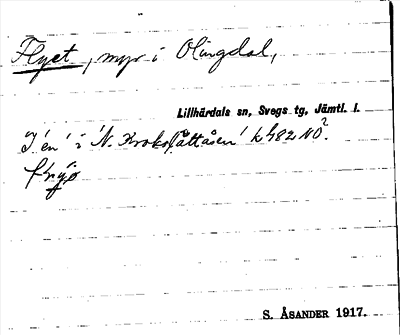 Flyet, myr i Olingdal,
Lillhärdals sn, Svegs tg, Jämtl. l.
'en' i 'N. Krokslåttåsen' k 482 NO?
S. ÅSANDER 1917.